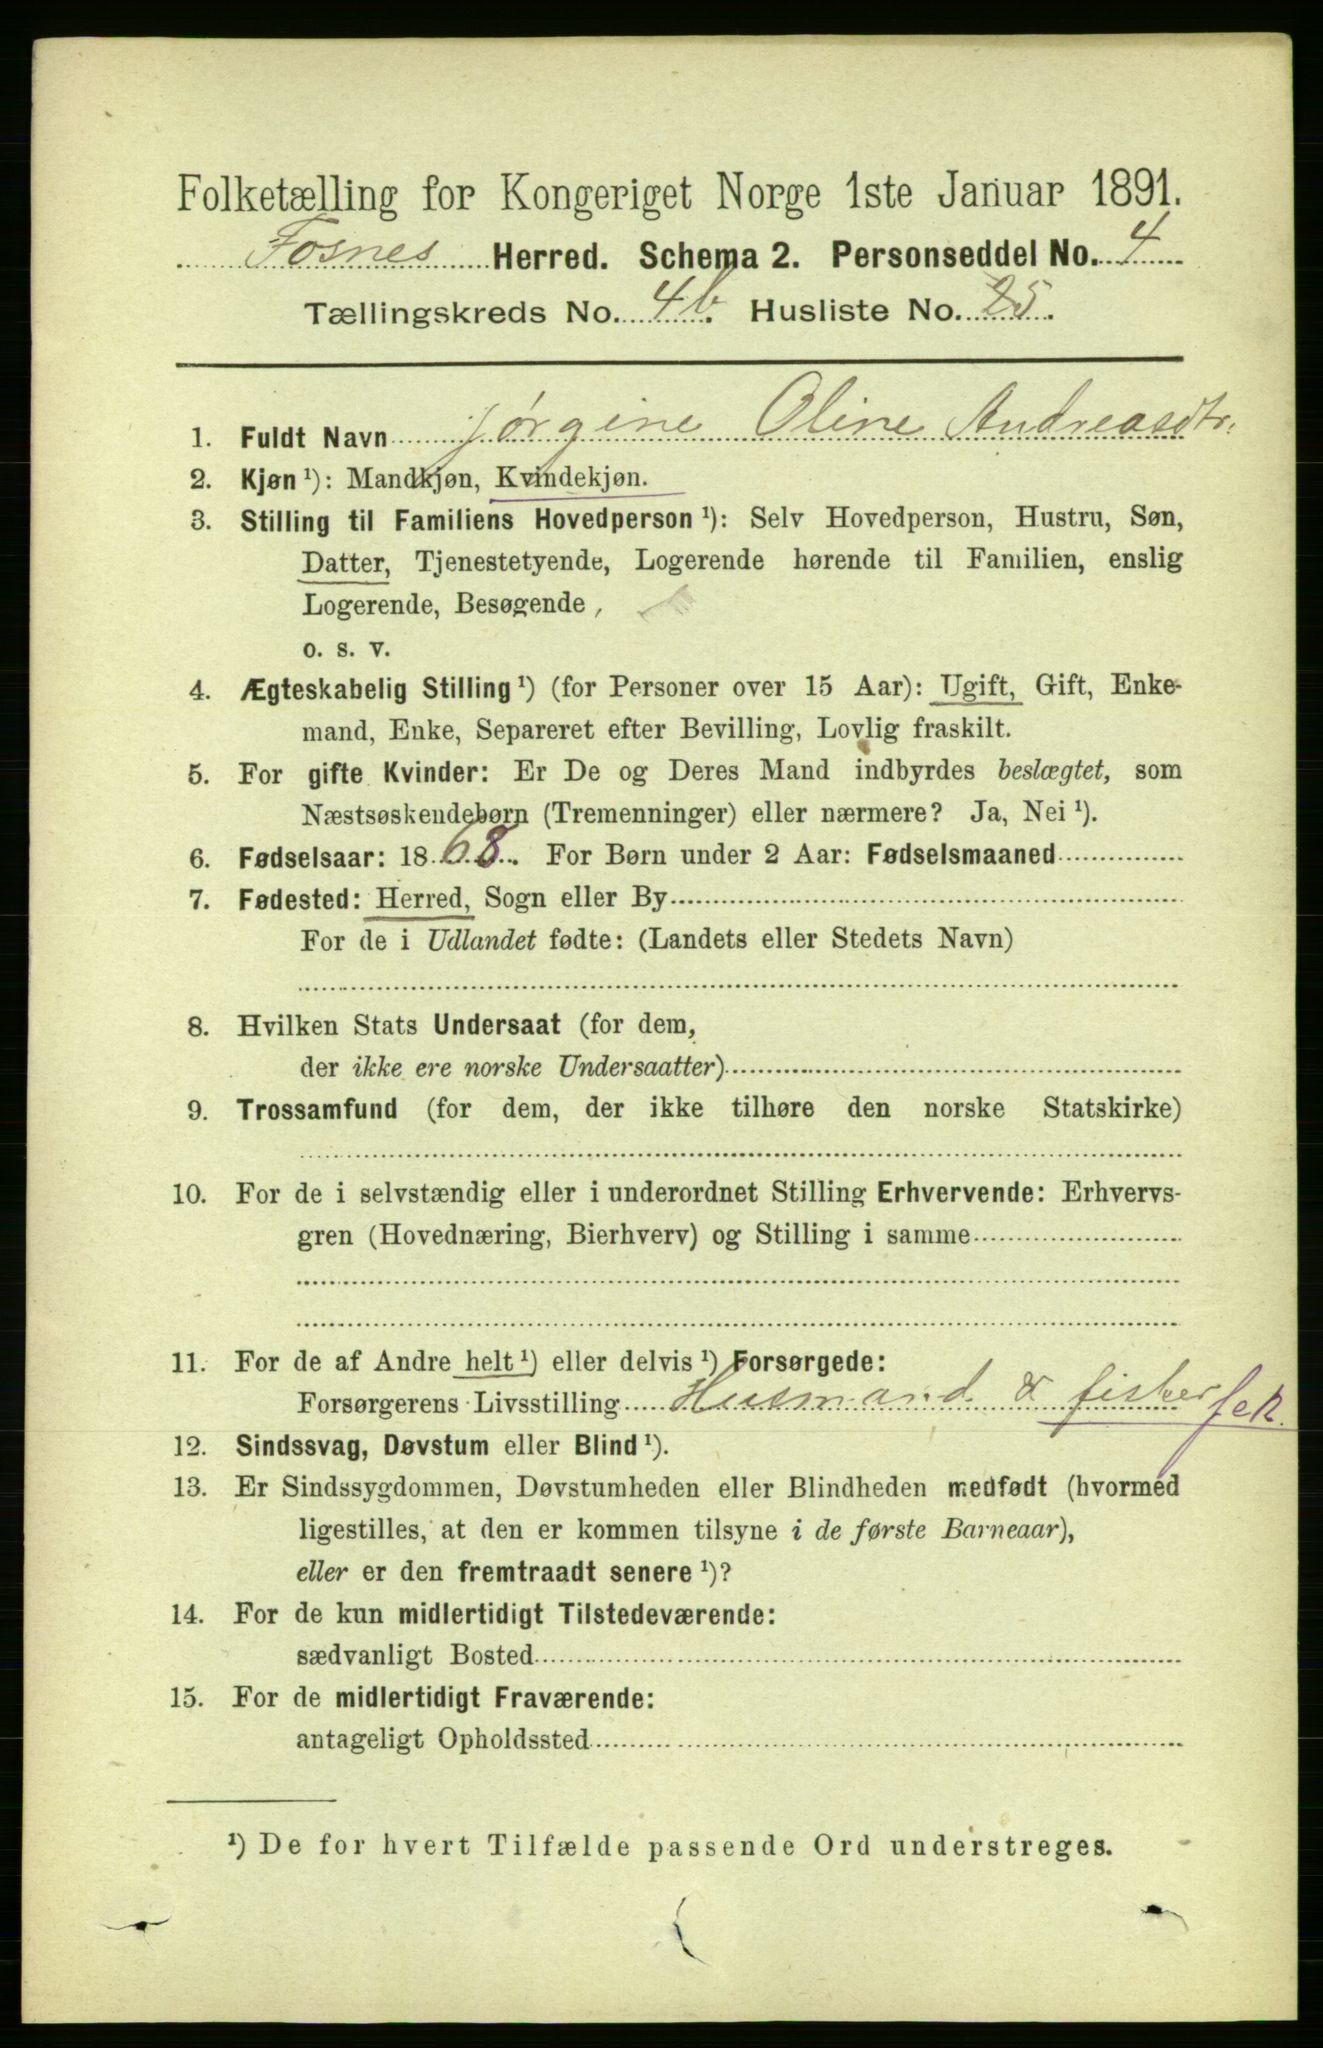 Folketælling for Kongeriget Norge 1ste Januar 1891.
Fosnes Herred. Schema 2. Personseddel No. 4
Tællingskreds No. 4b. Husliste No. 25.
1. Fuldt Navn Jørgine Oline Andreasdtr.
2. Kjøn ¹): Mandkjøn, Kvindekjøn.
3. Stilling til Familiens Hovedperson ¹): Selv Hovedperson, Hustru, Søn,
Datter, Tjenestetyende, Logerende hørende til Familien, enslig
Logerende, Besøgende,
o. s. v.
4. Ægteskabelig Stilling ¹) (for Personer over 15 Aar): Ugift, Gift, Enke-
mand, Enke, Separeret efter Bevilling, Lovlig fraskilt.
5. For gifte Kvinder: Er De og Deres Mand indbyrdes beslægtet, som
Næstsøskendebørn (Tremenninger) eller nærmere? Ja, Nei ¹).
6. Fødselsaar: 1868. For Børn under 2 Aar: Fødselsmaaned
7. Fødested: Herred, Sogn eller By
For de i Udlandet fødte: (Landets eller Stedets Navn)
8. Hvilken Stats Undersaat (for dem,
der ikke ere norske Undersaatter)
9. Trossamfund (for dem, der ikke tilhøre den norske Statskirke)
10. For de i selvstændig eller i underordnet Stilling Erhvervende: Erhvervs-
gren (Hovednæring, Bierhverv) og Stilling i samme
11. For de af Andre helt ¹) eller delvis ¹) Forsørgede:
Forsørgerens Livsstilling Husmand & fisker
12. Sindssvag, Døvstum eller Blind ¹).
13. Er Sindssygdommen, Døvstumheden eller Blindheden medfødt (hvormed
ligestilles, at den er kommen tilsyne i de første Barneaar),
eller er den fremtraadt senere ¹)?
14. For de kun midlertidigt Tilstedeværende:
sædvanligt Bosted
15. For de midlertidigt Fraværende:
antageligt Opholdssted
¹) De for hvert Tilfælde passende Ord understreges.